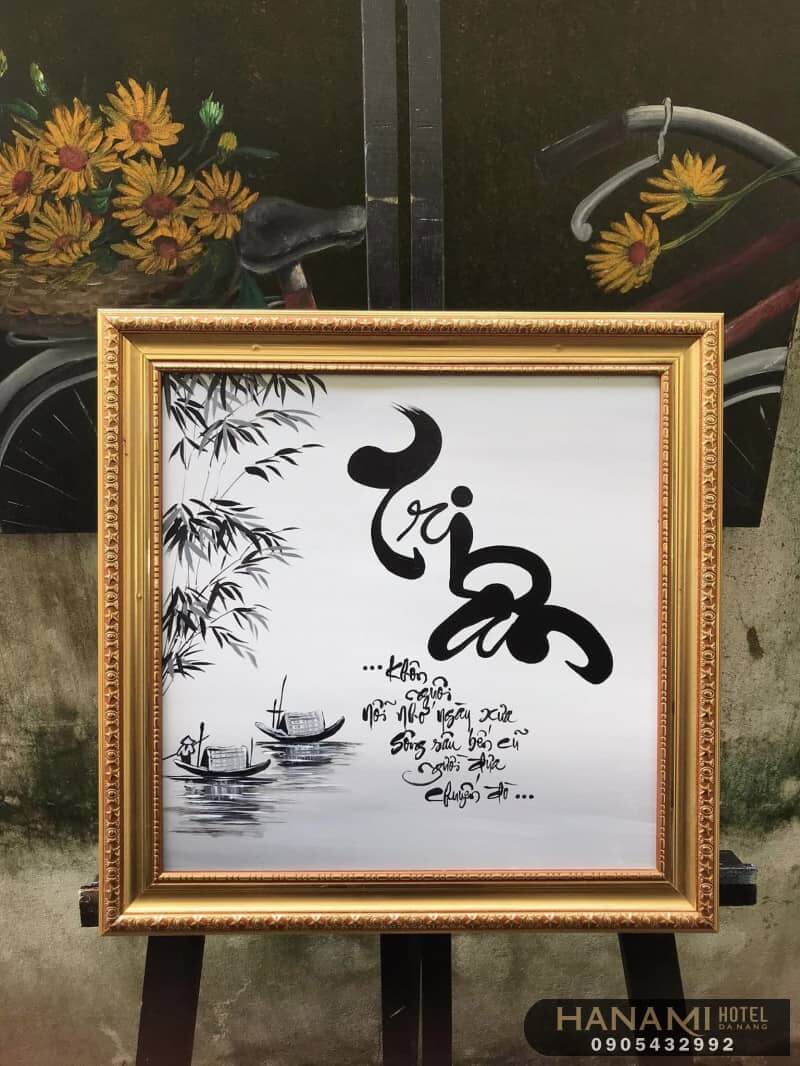 Tri
Ân
... Khôn
nguôi
nỗi nhớ ngày xưa
Sông sâu bến cũ
người đưa
chuyến đò ...
HANAMI HOTEL
DA NANG
0905432992